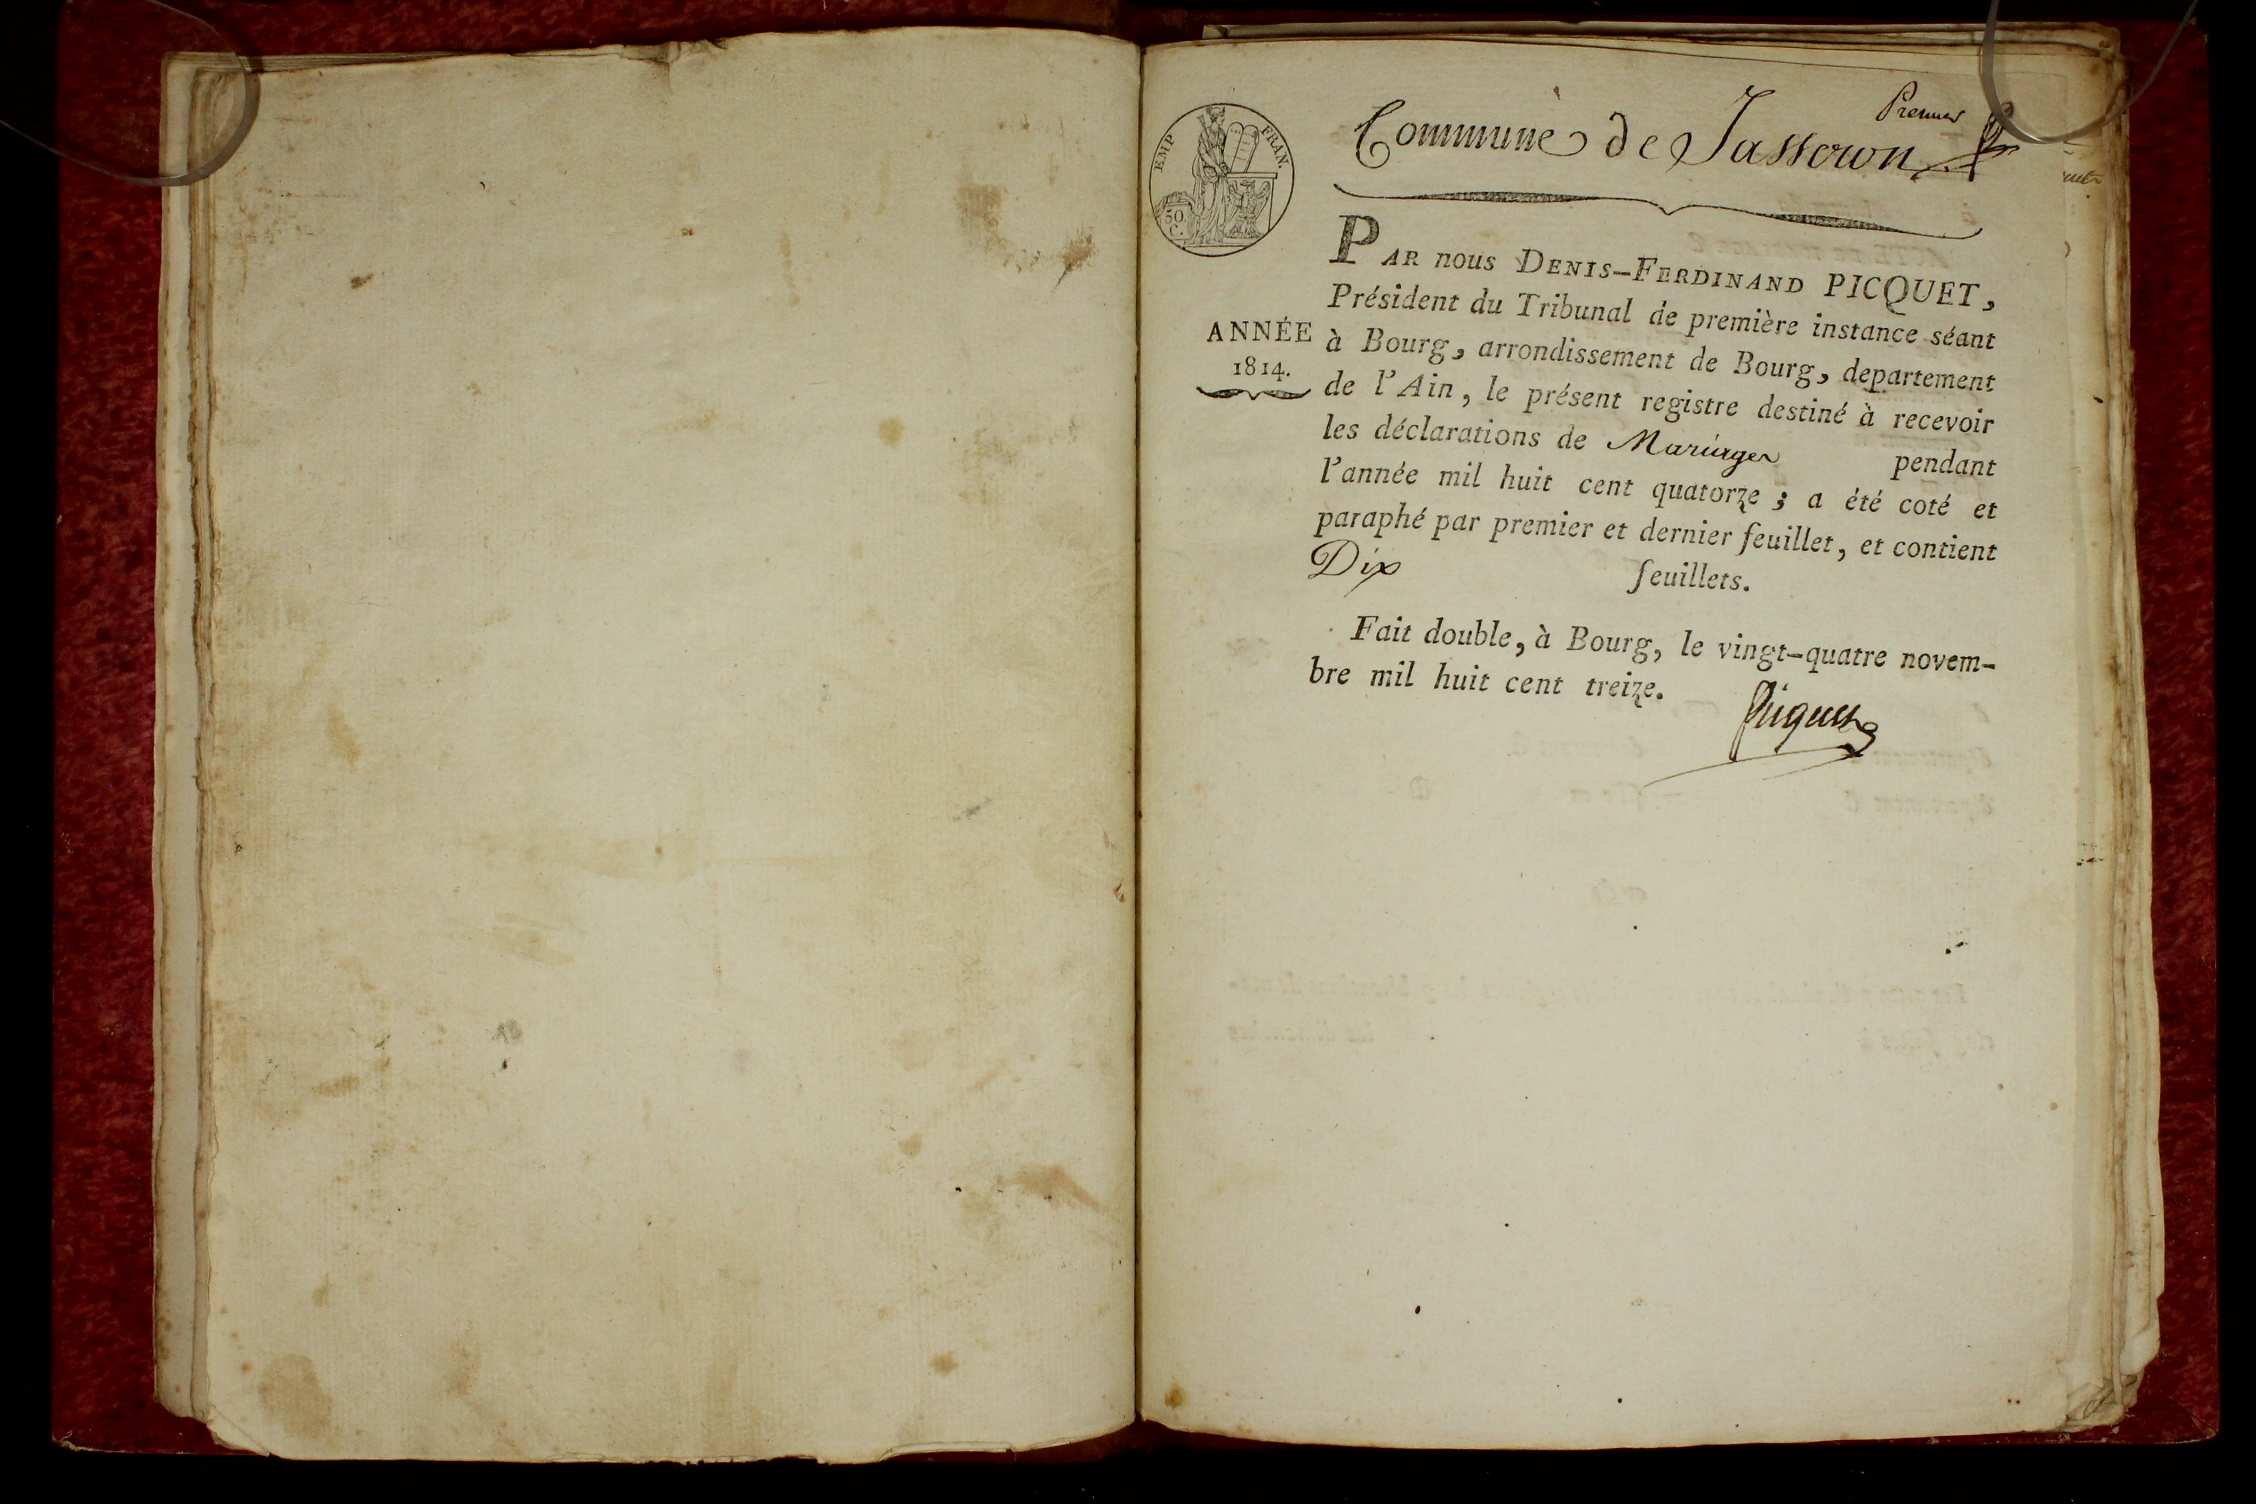 Premier
Commune de Jasseron
EMP FRAN.
50.
C.
PAR nous DENIS-FERDINAND PICQUET,
Président du Tribunal de première instance séant
ANNÉE
1814.
à Bourg, arrondissement de Bourg, departement
de l'Ain, le présent registre destiné à recevoir
les déclarations de Mariages pendant
l'année mil huit cent quatorze; a été coté et
paraphé par premier et dernier feuillet, et contient
Dix feuillets.
Fait double, à Bourg, le vingt-quatre novem-
bre mil huit cent treize.
Picquet